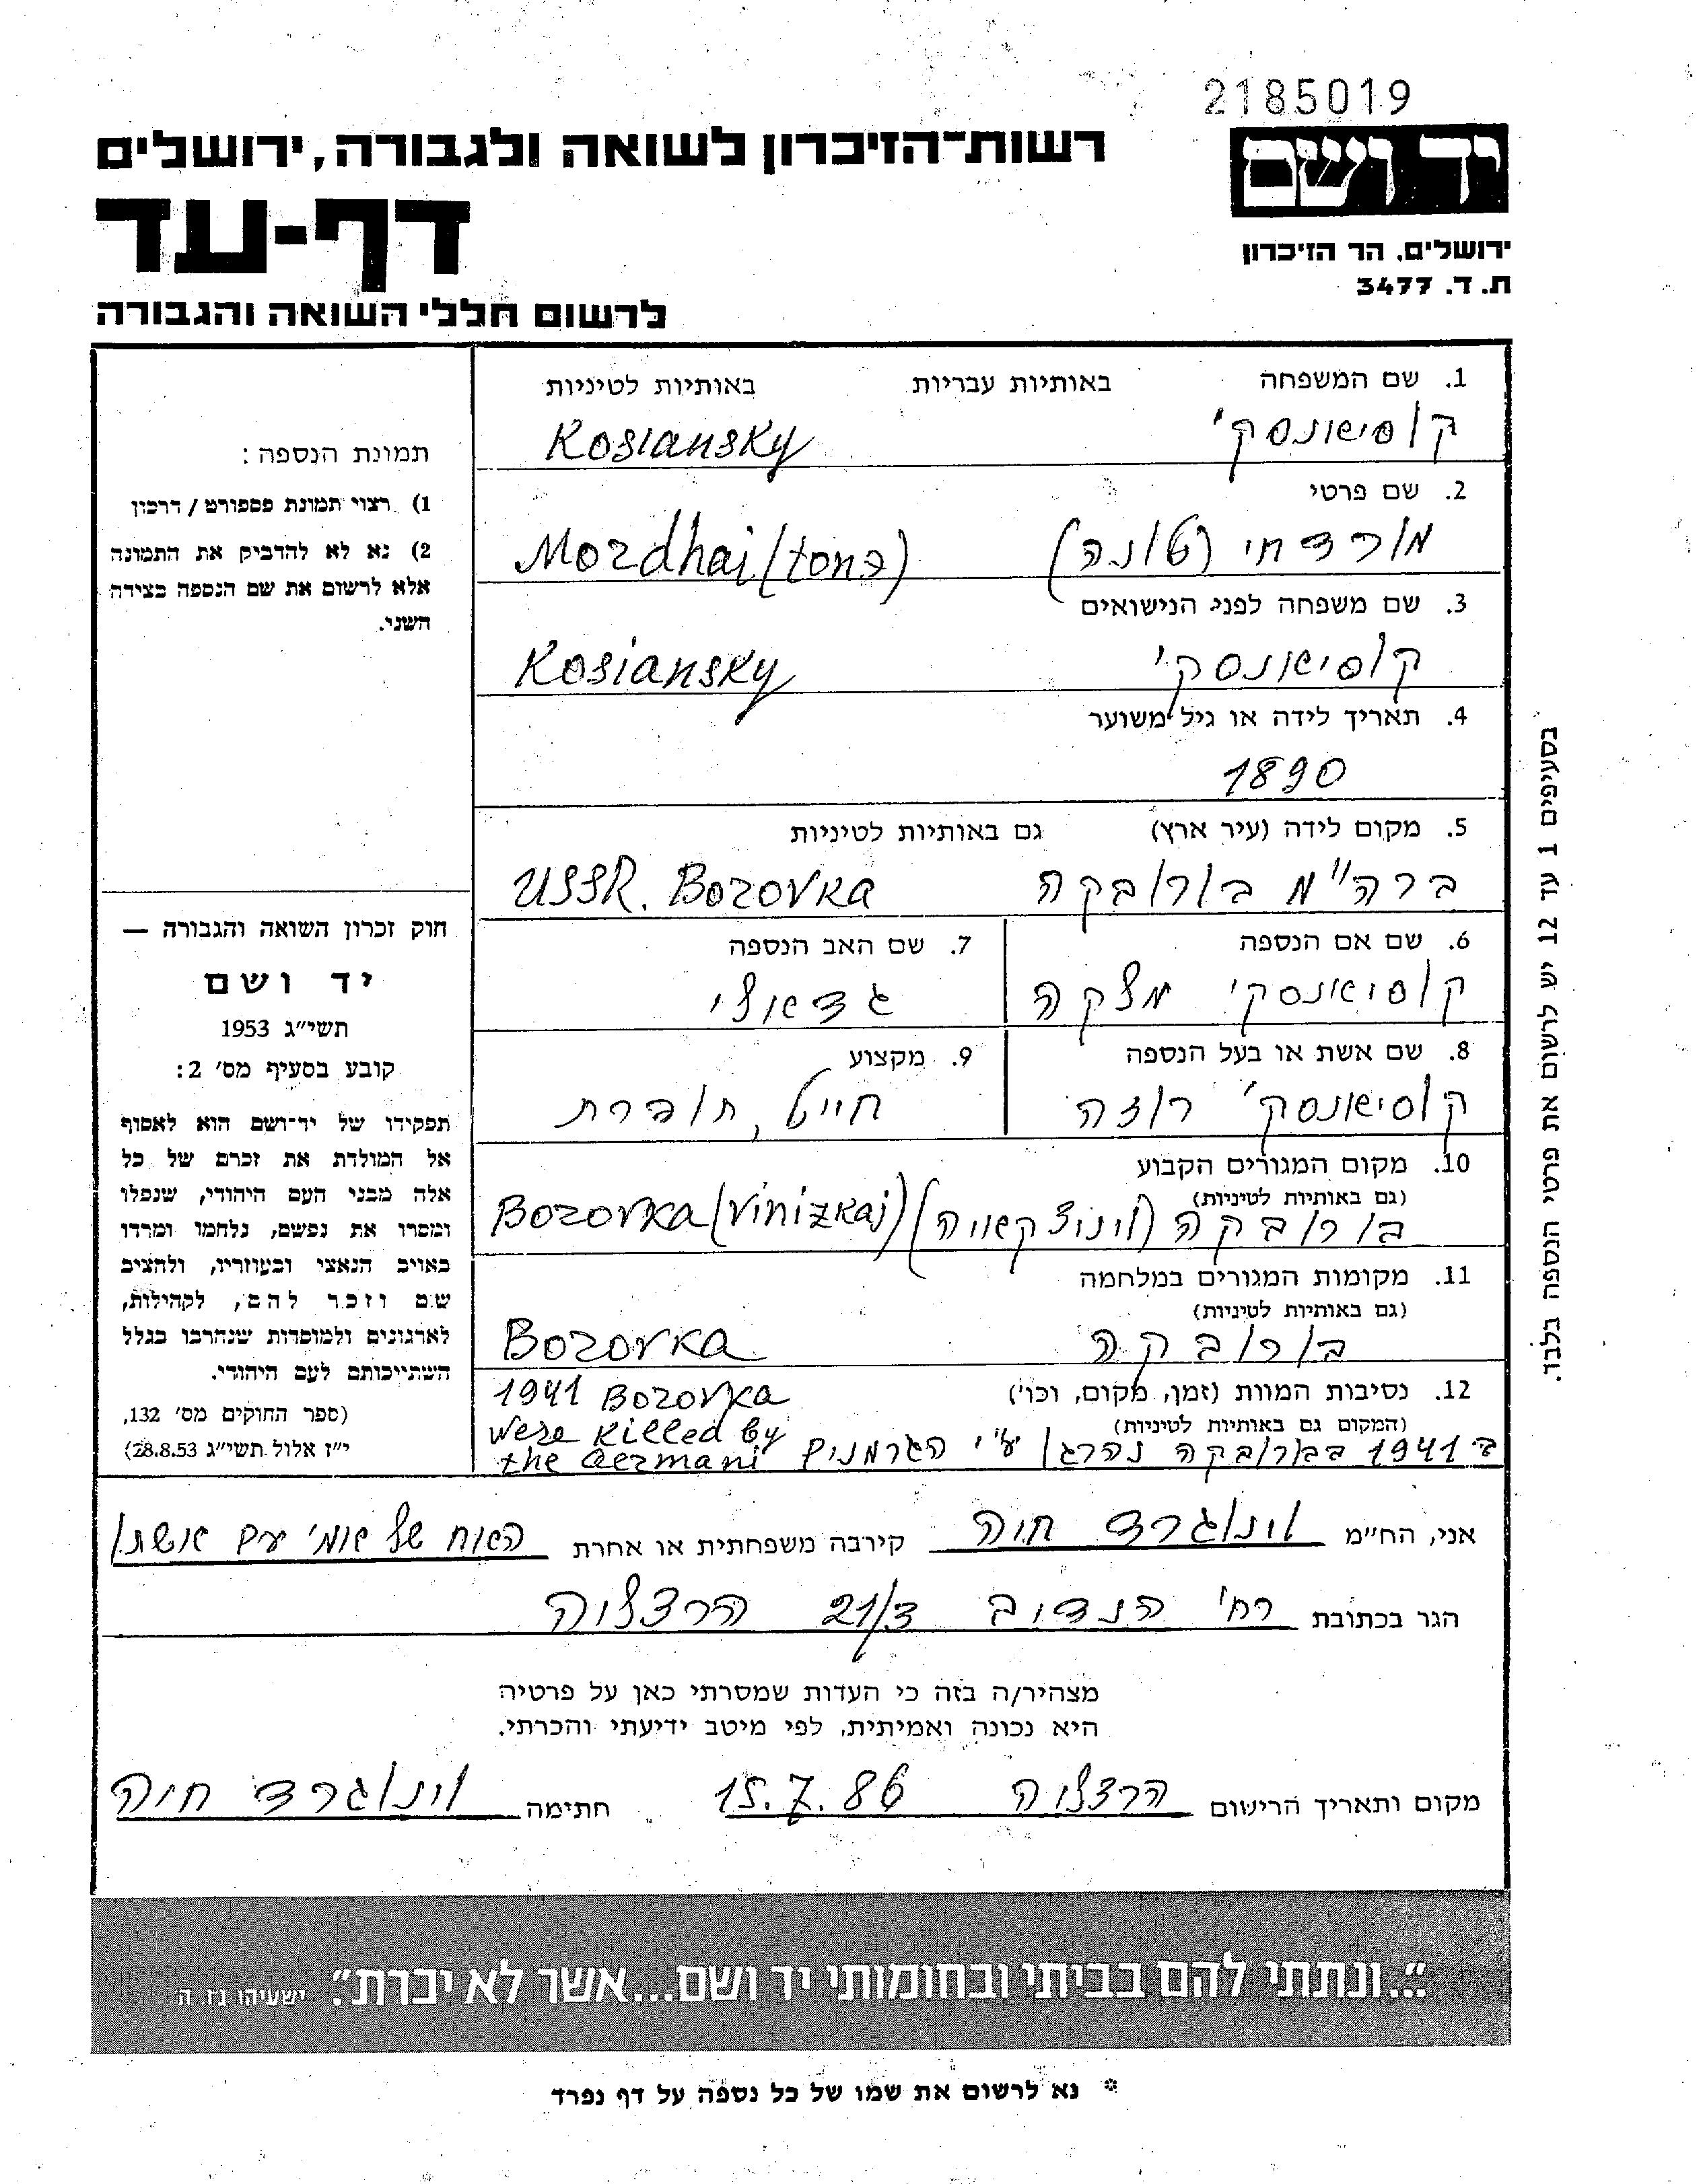 2185019
יד ושם
רשות-הזיכרון לשואה ולגבורה, ירושלים
דף-עד
ירושלים, הר הזיכרון
ת. ד. 3477
לרשום חללי השואה והגבורה
1. שם המשפחה באותיות עבריות באותיות לטיניות
קוסיאנסקי Kosiansky
2. שם פרטי
מורדחי (טונה) Mordhai (tona)
3. שם משפחה לפני הנישואים
קוסיאנסקי Kosiansky
4. תאריך לידה או גיל משוער
1890
5. מקום לידה (עיר ארץ) גם באותיות לטיניות
ברה"מ בורובקה USSR. Borovka
6. שם אם הנספה 7. שם האב הנספה
קוסיאנסקי מלקה גדאלי
8. שם אשת או בעל הנספה 9. מקצוע
קוסיאנסקי רוזה חייט,
10. מקום המגורים הקבוע
(גם באותיות לטיניות)
בורובקה Borovka (Vinizkaj)
11. מקומות המגורים במלחמה
(גם באותיות לטיניות)
בורובקה Borovka
12. נסיבות המוות (זמן, מקום, וכו') 1941 Borovka
(המקום גם באותיות לטיניות) were killed by
ב 1941 בבורובקה נהרגו ע"י הגרמנים the Germani
תמונת הנספה:
1) רצוי תמונת פספורט / דרכון
2) נא לא להדביק את התמונה
אלא לרשום את שם הנספה בצידה
השני.
חוק זכרון השואה והגבורה —
יד ושם
תשי"ג 1953
קובע בסעיף מס' 2:
תפקידו של יד-ושם הוא לאסוף
אל המולדת את זכרם של כל
אלה מבני העם היהודי, שנפלו
ומסרו את נפשם, נלחמו ומרדו
באויב הנאצי ובעוזריו, ולהציב
שם וזכר להם, לקהילות,
לארגונים ולמוסדות שנחרבו בגלל
השתייכותם לעם היהודי.
(ספר החוקים מס' 132,
י"ז אלול תשי"ג 28.8.53)
בסעיפים 1 עד 12 יש לרשום את פרטי הנספה בלבד.
אני, הח"מ וינוגרד חיה קירבה משפחתית או אחרת האח של אמי עם אשתו
הגר בכתובת רח' הנדיב 21/3 הרצליה
מצהיר/ה בזה כי העדות שמסרתי כאן על פרטיה
היא נכונה ואמיתית, לפי מיטב ידיעתי והכרתי.
מקום ותאריך הרישום הרצליה 15.7.86 חתימה וינוגרד חיה
"...ונתתי להם בביתי ובחומותי יד ושם...אשר לא יכרת". ישעיהו נו, ה
* נא לרשום את שמו של כל נספה על דף נפרד